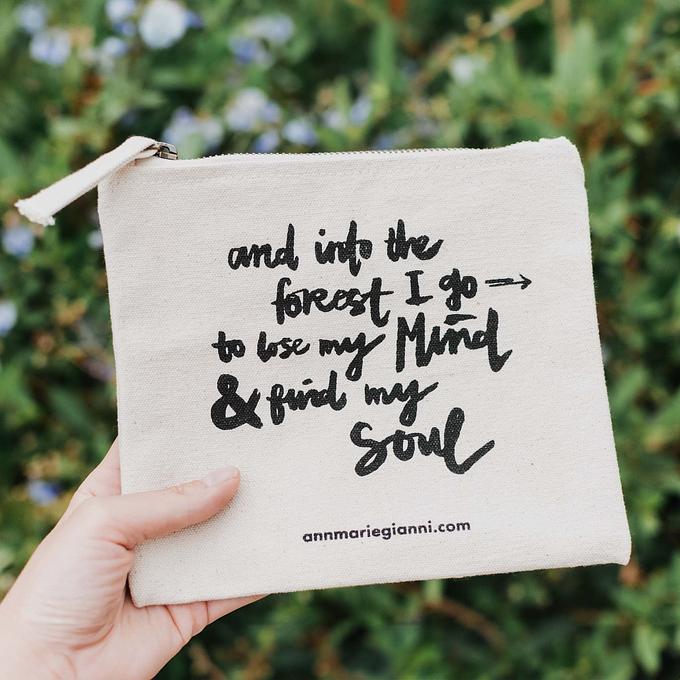 and into the
forest I go →
to lose my Mind
& find my
Soul
annmariegianni.com